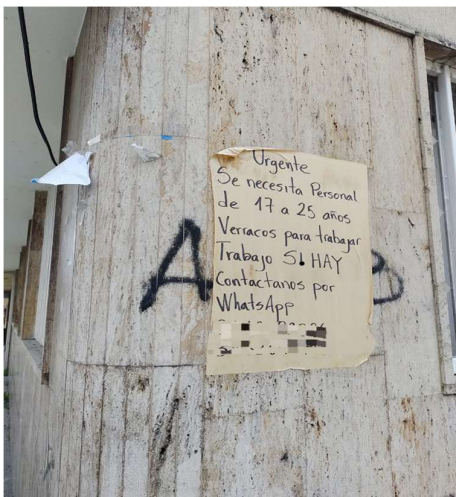 Urgente
Se necesita Personal
de 17 a 25 años
Verracos para trabajar
Trabajo Si HAY
Contactanos por
WhatsApp